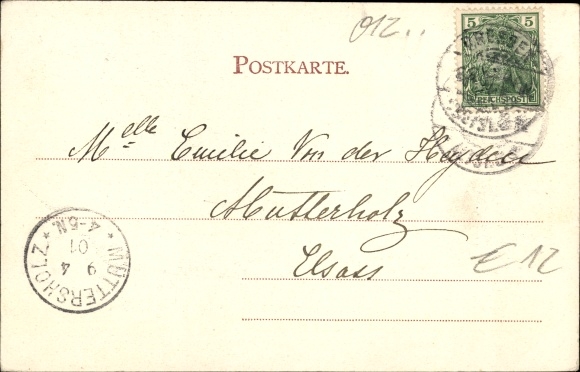 012..
5 5
REICHSPOST
POSTKARTE.
Melle Emilie Von der Heyden
Mutterholz
Elsass
€ 12
MÜTTERSHOLZ
9 4
01
4-5N.